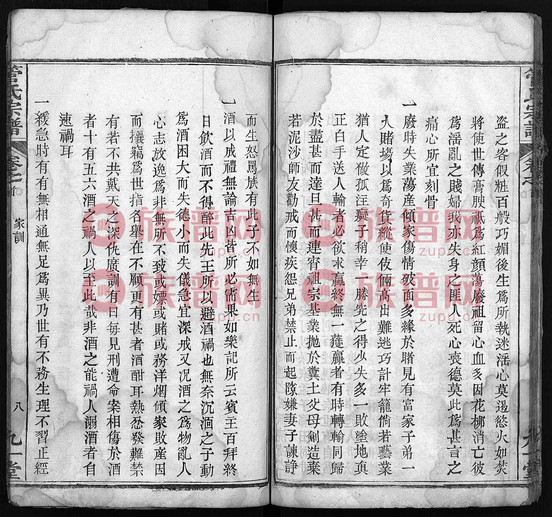 盜之客假粧百般巧媚後生為所執迷淫心莫遏慾火如焚
將使世傳膏腴為紅顏蕩廢祖留心血多因花柳消亡彼
為淫亂之賤婦我亦失身之匪人死心喪德莫此為甚言之
痛心所宜刻骨
一廢時失業蕩產傾家傷情破面多緣於賭見有富家子弟一
入賭場以為奇貨縱使伎倆高出難逃巧計牢籠倘若藝業
猶人定做孤注瘋子稍幸勝先之得少失多一敗塗地真
正白手送人輸者必欲求贏終無一贏贏者有時轉輸同歸
於盡甚而達旦甚而連宵祖宗基業拋於糞土父母劬造棄
若泥沙師友勸戒而懷疾怨兄弟禁止而起隙嫌妻子諫諍
而生怒罵族有此子不如無生
一酒以成禮無論吉凶皆所必需果如樂記所云賓王百拜終
日飲酒而不得醉此先王所以避酒禍也無奈沉湎之子動
為酒困大而失德小而失儀急宜深戒又况酒之為物亂人
心志放逸為非無所不致或嫖或賭或務洋烟傾家敗産因
而攘竊為世指名舉在不顧更有甚者酒酣耳熱忿發難禁
有若不共戴天之深仇廣讞有日每見刑遭命案相傷於酒
者十有五六酒之禍人以至此哉非酒之能禍人溺酒者自
速禍耳
一緩急時有有無相通無足為異乃世有不務生理不習正經
管氏宗譜
卷之
家訓
八
九一堂
族譜网
zupu.cn